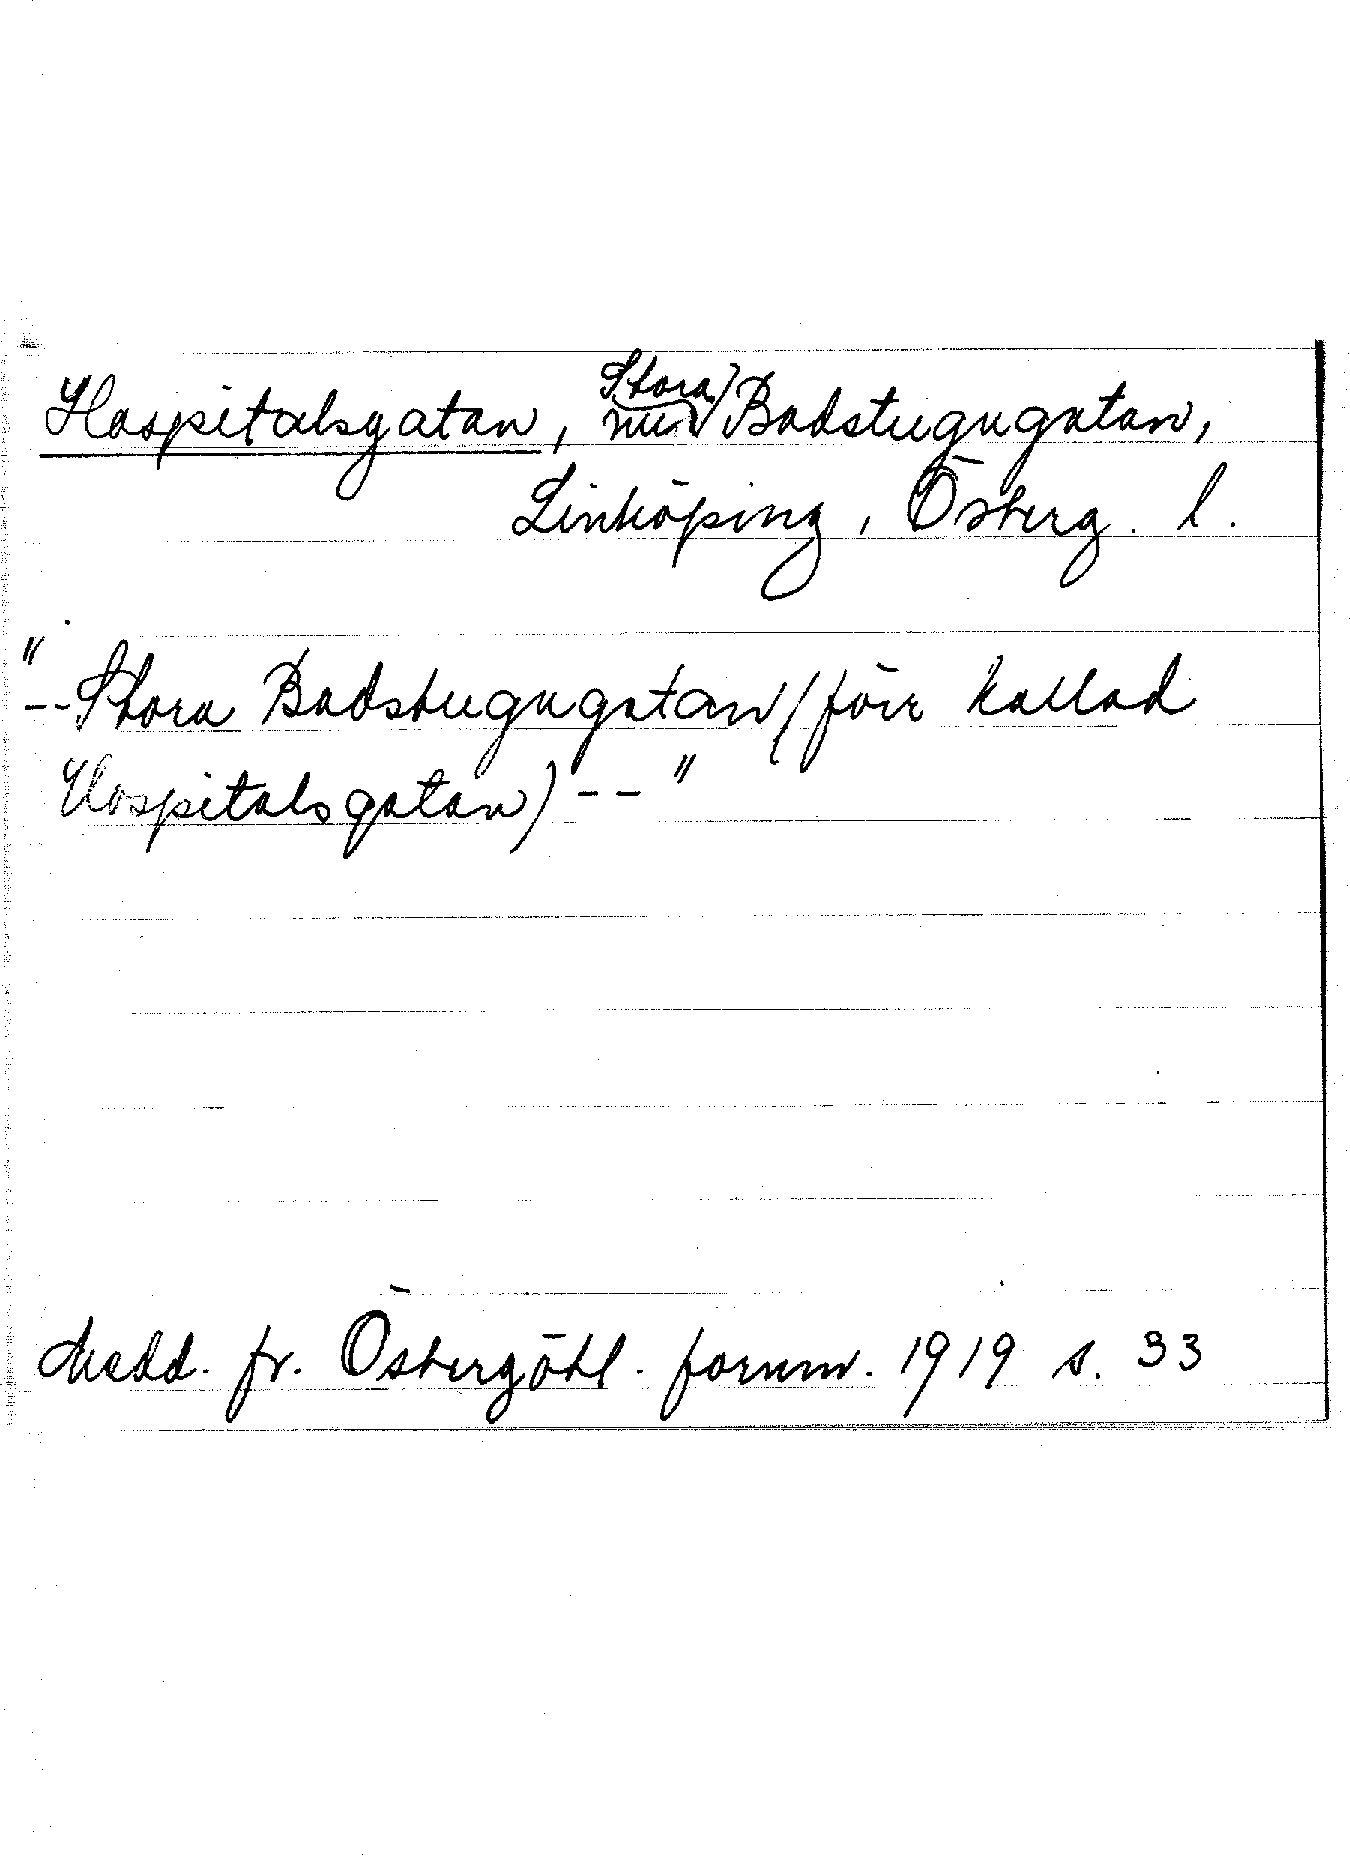 Hospitalsgatan, nuv. Stora Badstugugatan,
Linköping, Österg. l.
"--Stora Badstugugatan (förr kallad
Hospitalsgatan) -- "
Medd. fr. Östergötl. fornm. 1919 s. 33